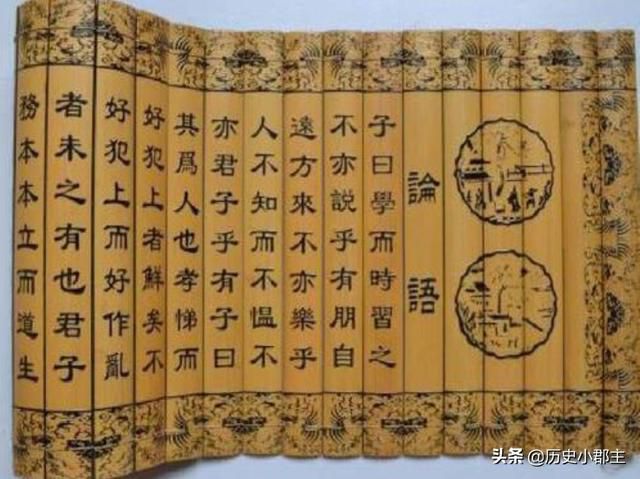 論語
子曰學而時習之
不亦說乎有朋自
遠方來不亦樂乎
人不知而不愠不
亦君子乎有子曰
其爲人也孝悌而
好犯上者鮮矣不
好犯上而好作亂
者未之有也君子
務本本立而道生
头条 @历史小郡主